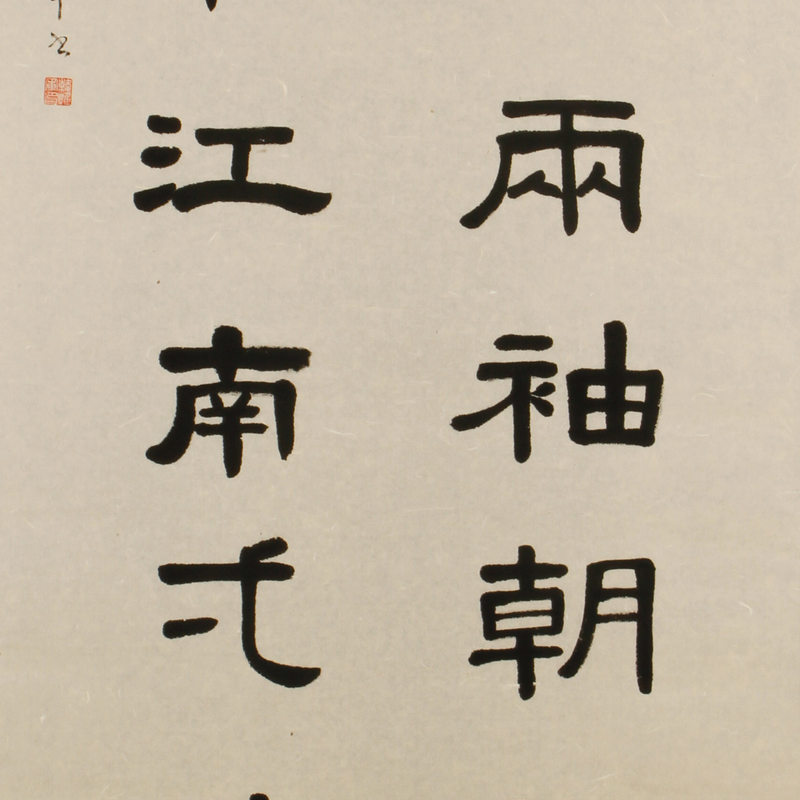 兩袖朝
江南弌